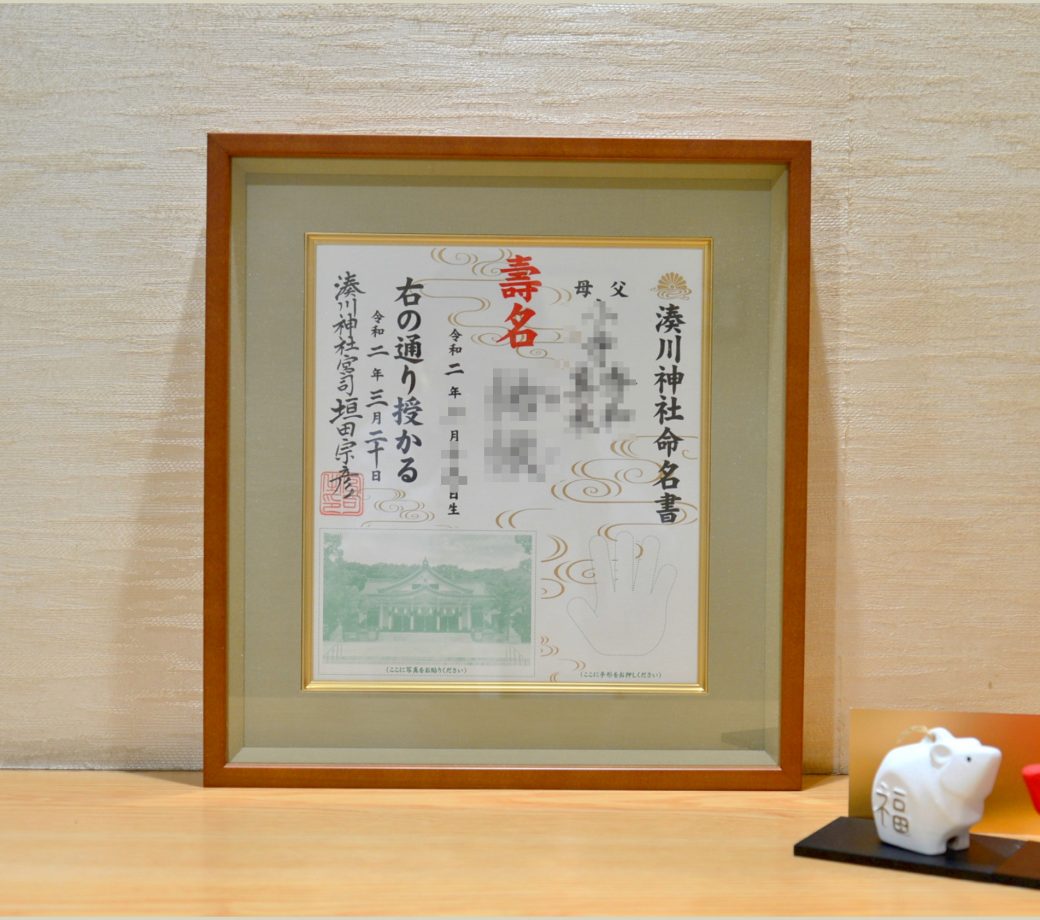 湊川神社命名書
父
母
壽名
令和二年
月
日生
右の通り授かる
令和二年三月二十日
湊川神社宮司 垣田宗彦
(ここに写真をお貼りください)
(ここに手形をお押しください)
福